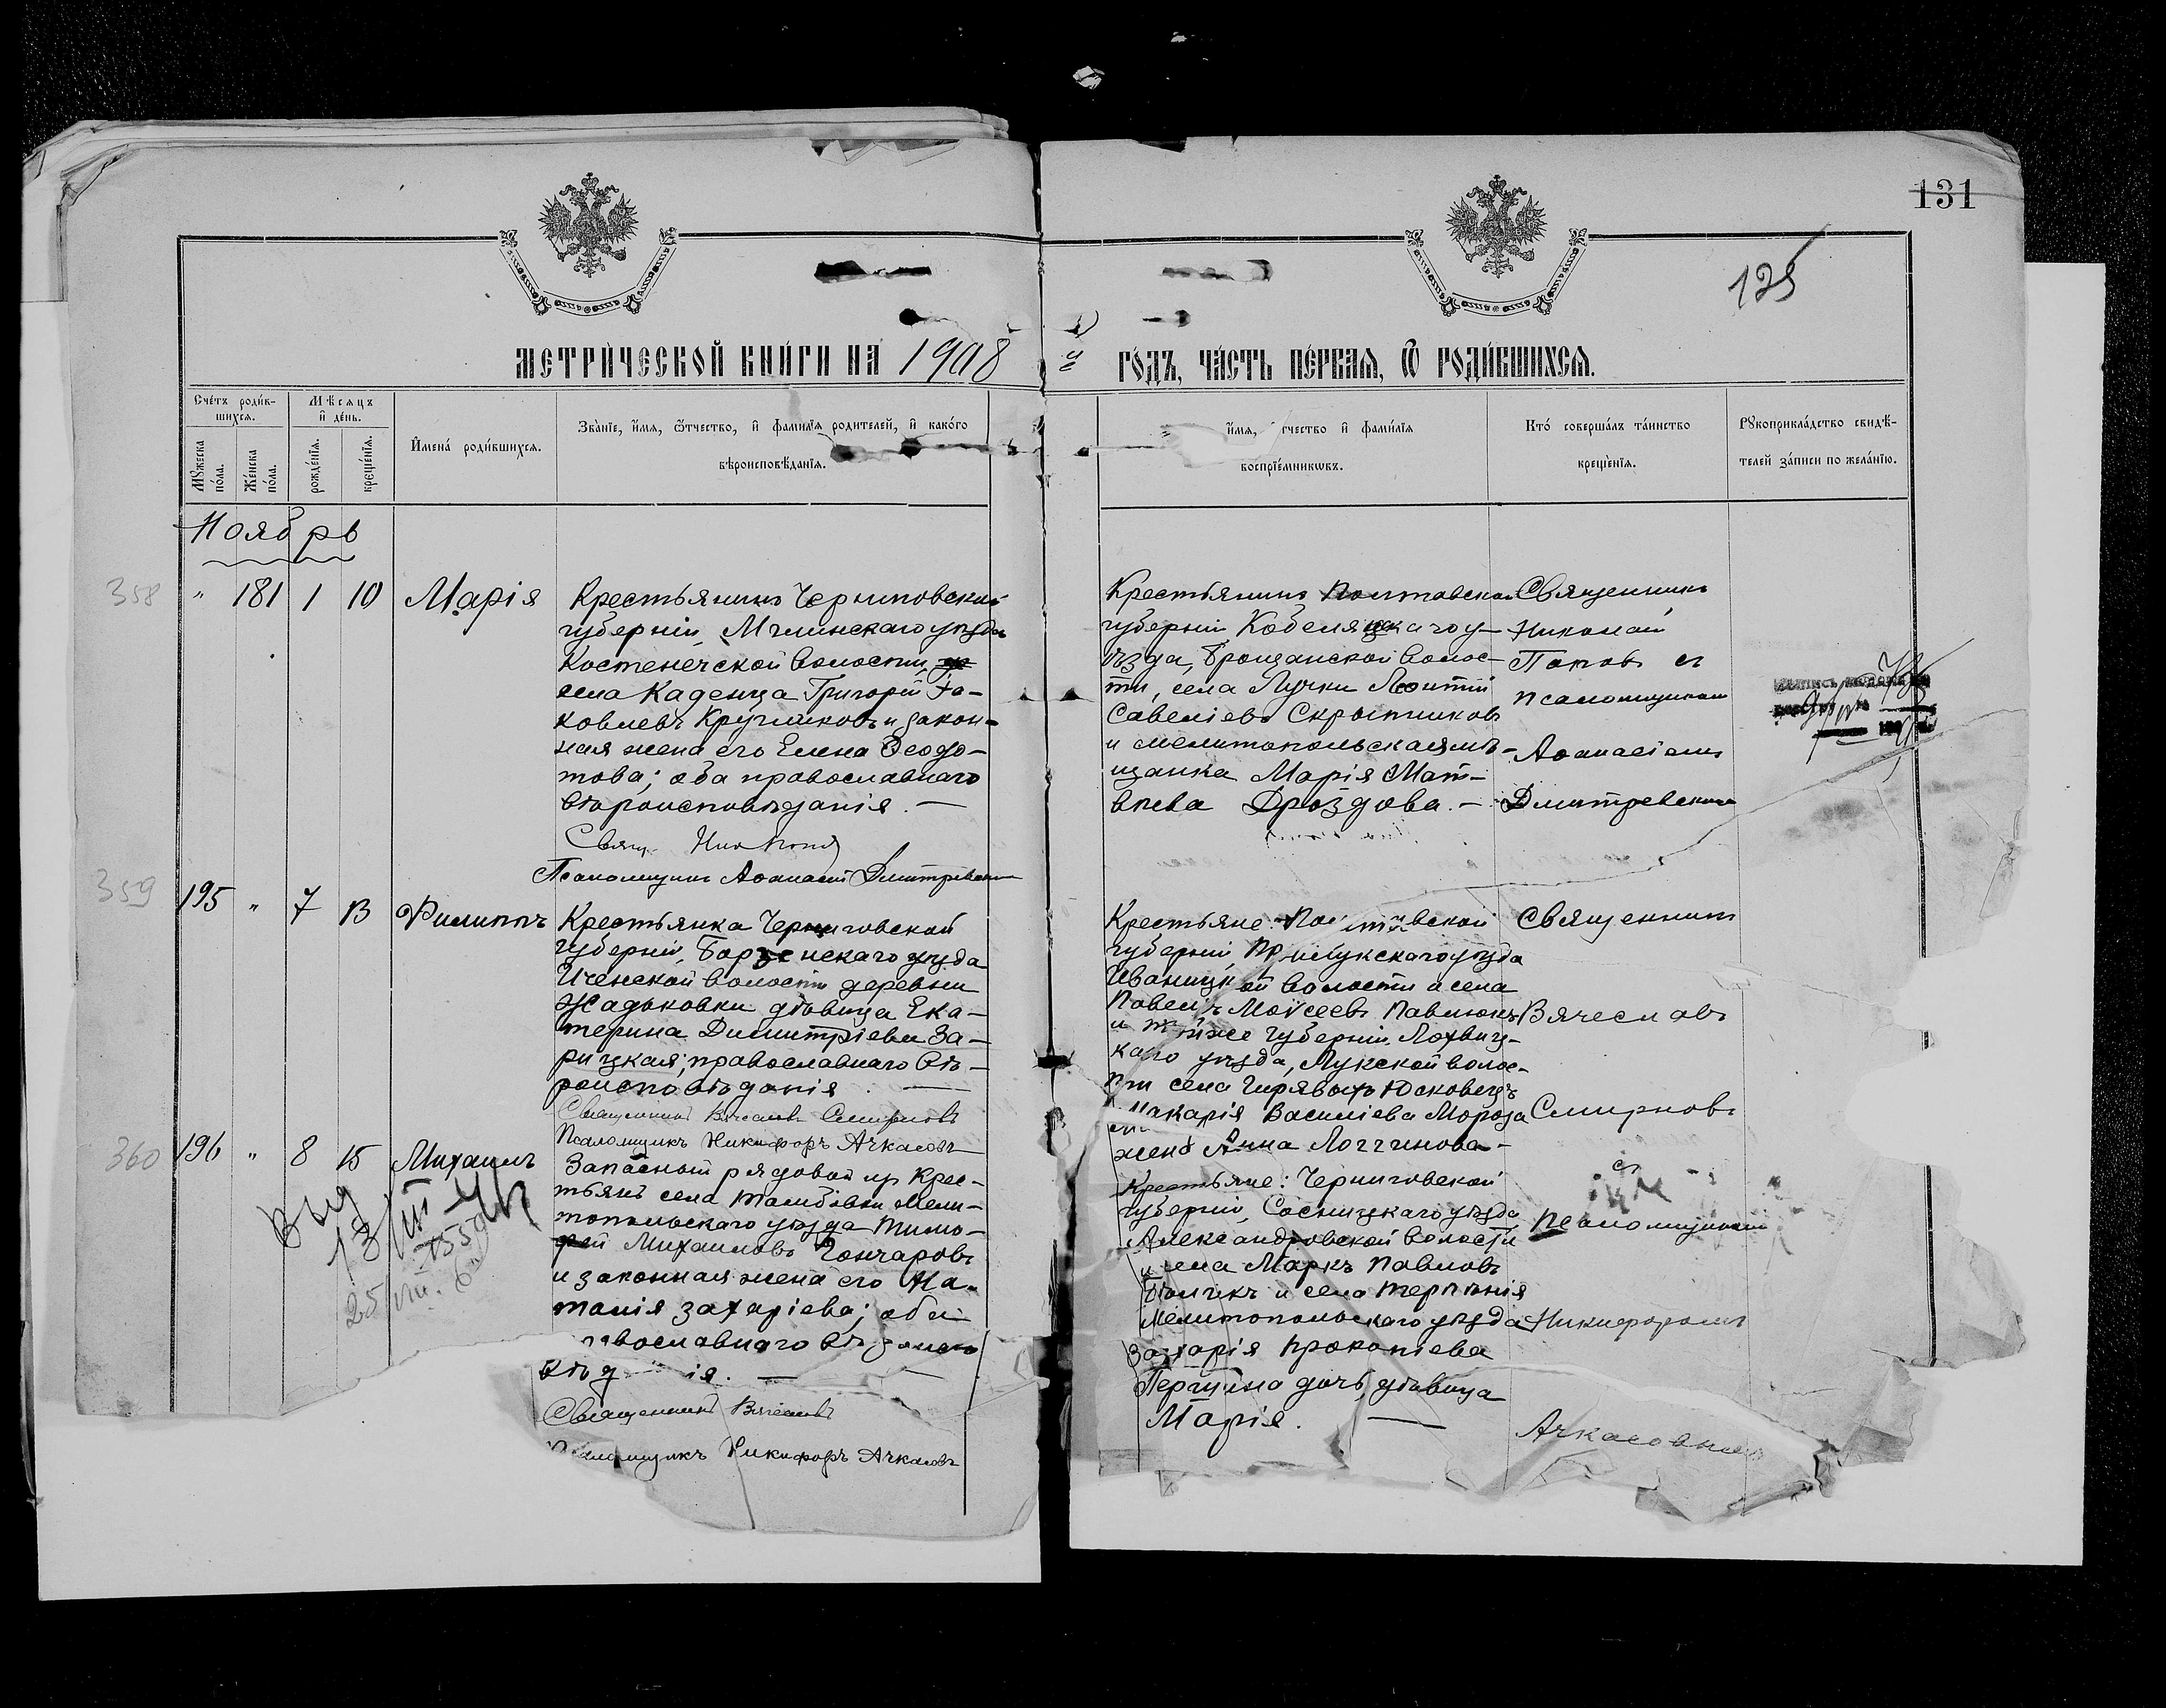 131
125
МЕТРИ́ЧЕСКОЙ КНИ́ГИ НА 1908 й ГО́ДЪ, ЧА́СТЬ ПЕ́РВАЯ, Ѿ РОДИ́ВШИХСЯ.
Сче́тъ роди́в-
шихся.
Мѣ́сяцъ
и҆ де́нь.
Му́жеска
по́ла.
Же́нска
по́ла.
рожде́нїя.
креще́нїя.
И҆мена̀ роди́вшихся.
Зва́нїе, и҆́мя, ѻ҆́тчество, и҆ фами́лїя роди́телей, и҆ како́го
вѣроисповѣ́данїя.
и҆́мя, тчество и҆ фами́лїя
воспрїе́мникѡвъ.
Кто̀ соверша́лъ та́инство
креще́нїя.
Рꙋкоприкла́дство свидѣ́-
телей за́писи по жела́нїю.
Ноябрь
358 " 181 1 10 Марія
Крестьянинъ Черниговской
губерніи, Мглинскаго уѣзда
Костеничской волости,
села Каденца Григорій Яковлевъ
Кругликовъ и закон-
ная жена его Елена Ѳедо-
това; оба православнаго
вѣроисповѣданія. —
Свящ. Ник Попов
Псаломщикъ Аѳанасій Дмитревскій
Крестьянинъ Полтавской
губерніи Кобеляцкаго у-
ѣзда, Брощанской волос-
ти, села Лучки Леонтій
Савеліевъ Скрыпниковъ
и мелитопольская мѣ-
щанка Марія Мат-
вѣева Дроздова. —
Священникъ
Николай
Поповъ съ
псаломщикомъ
Аѳанасіемъ
Дмитревскимъ
359 195 " 7 13 Филиппъ
Крестьянка Черниговской
губерніи, Борзенскаго уѣзда
Иченской волости деревни
Жадьковки дѣвица Ека-
терина Димитріева За-
рицкая; православнаго вѣ-
роисповѣданія. —
Священникъ Вячеславъ Смирновъ
Псаломщикъ Никифоръ Ачкасовъ
Крестьяне: Полтавской
губерніи, Прилукскаго уѣзда
Иваницкой волости и села
Павелъ Моисеевъ Павлюкъ
и тойже губерніи Лохвиц-
каго уѣзда, Лукской волос-
ти села Гирявыхъ Юсковецъ
Макарія Василіева Мороза
жена Анна Логгинова —
Священникъ
Вячеславъ
Смирновъ
съ
псаломщикомъ
Никифоромъ
Ачкасовымъ
360 196 " 8 15 Михаилъ
Запасный рядовой изъ крес-
тьянъ села Тамбовки Мели-
топольскаго уѣзда Тимо-
фей Михаиловъ Гончаровъ
и законная жена его На-
талія Захаріева; оба
православнаго
Священникъ Вячеславъ
Псаломщикъ Никифоръ Ачкасовъ
Крестьяне: Черниговской
губерніи, Сосницкаго уѣзда
Александровской волости
и села Маркъ Павловъ
и села Терпѣнія
Мелитопольскаго уѣзда
Захарія Прокопіева
дочь дѣвица
Марія. —